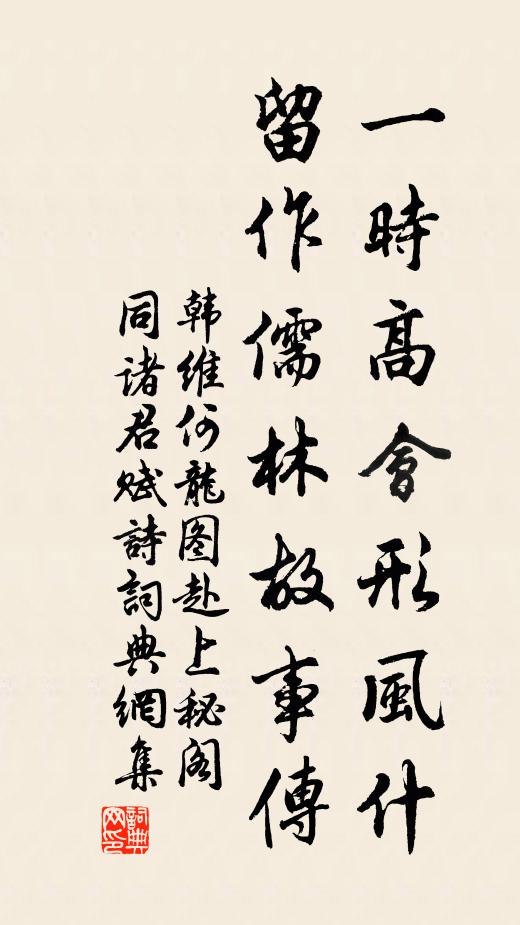 一時高會形風什
留作儒林故事傳
韩維何龍图赴上秘阁
同诸君赋詩詞典網集
詞典
网印